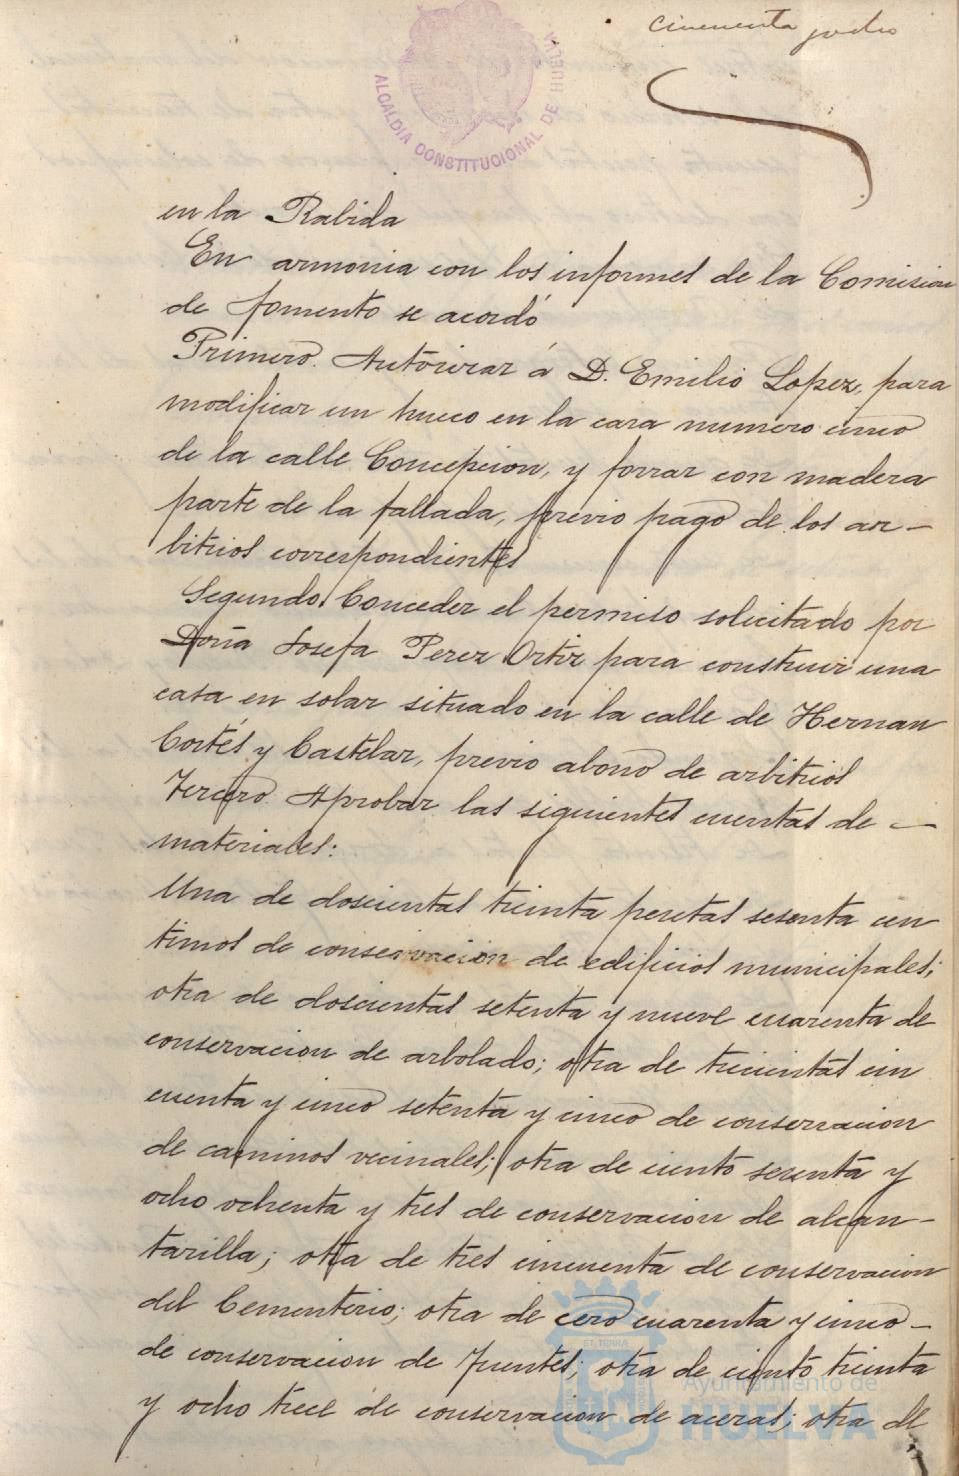 cincuenta y ocho
ALCALDIA CONSTITUCIONAL DE HUELVA
en la Rabida
En armonia con los informes de la Comision
de fomento se acordó
Primero. Autorizar á D. Emilio Lopez, para
modificar un hueco en la casa numero cinco
de la calle Concepcion, y forrar con madera
parte de la fallada, previo pago de los ar-
bitrios correspondientes
Segundo. Conceder el permiso solicitado por
Doña Josefa Perez Ortiz para construir una
casa en solar situado en la calle de Hernan
Cortés y Castelar, previo abono de arbitrios
Tercero. Aprobar las siguientes cuentas de -
materiales:
Una de doscientas treinta pesetas sesenta cen
timos de conservacion de edificios municipales;
otra de doscientas setenta y nueve cuarenta de
conservacion de arbolado; otra de trescientas cin
cuenta y cinco setenta y cinco de conservacion
de caminos vecinales; otra de ciento sesenta y
ocho ochenta y tres de conservacion de alcan-
tarilla; otra de tres cincuenta de conservacion
del Cementerio; otra de cero cuarenta y cinco -
de conservacion de fuentes; otra de ciento treinta
y ocho trece de conservacion de aceras; otra de
Ayuntamiento de
HUELVA